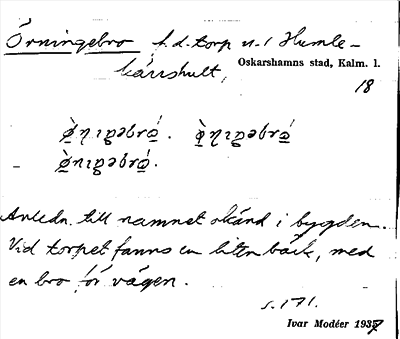 Örningebro f.d. torp u. / Humle-
kärrshult,
Oskarshamns stad, Kalm. l.
18
Anledn. till namnet okänd i bygden.
Vid torpet fanns en liten bäck, med
en bro för vägen.
s. 171.
Ivar Modéer 1937